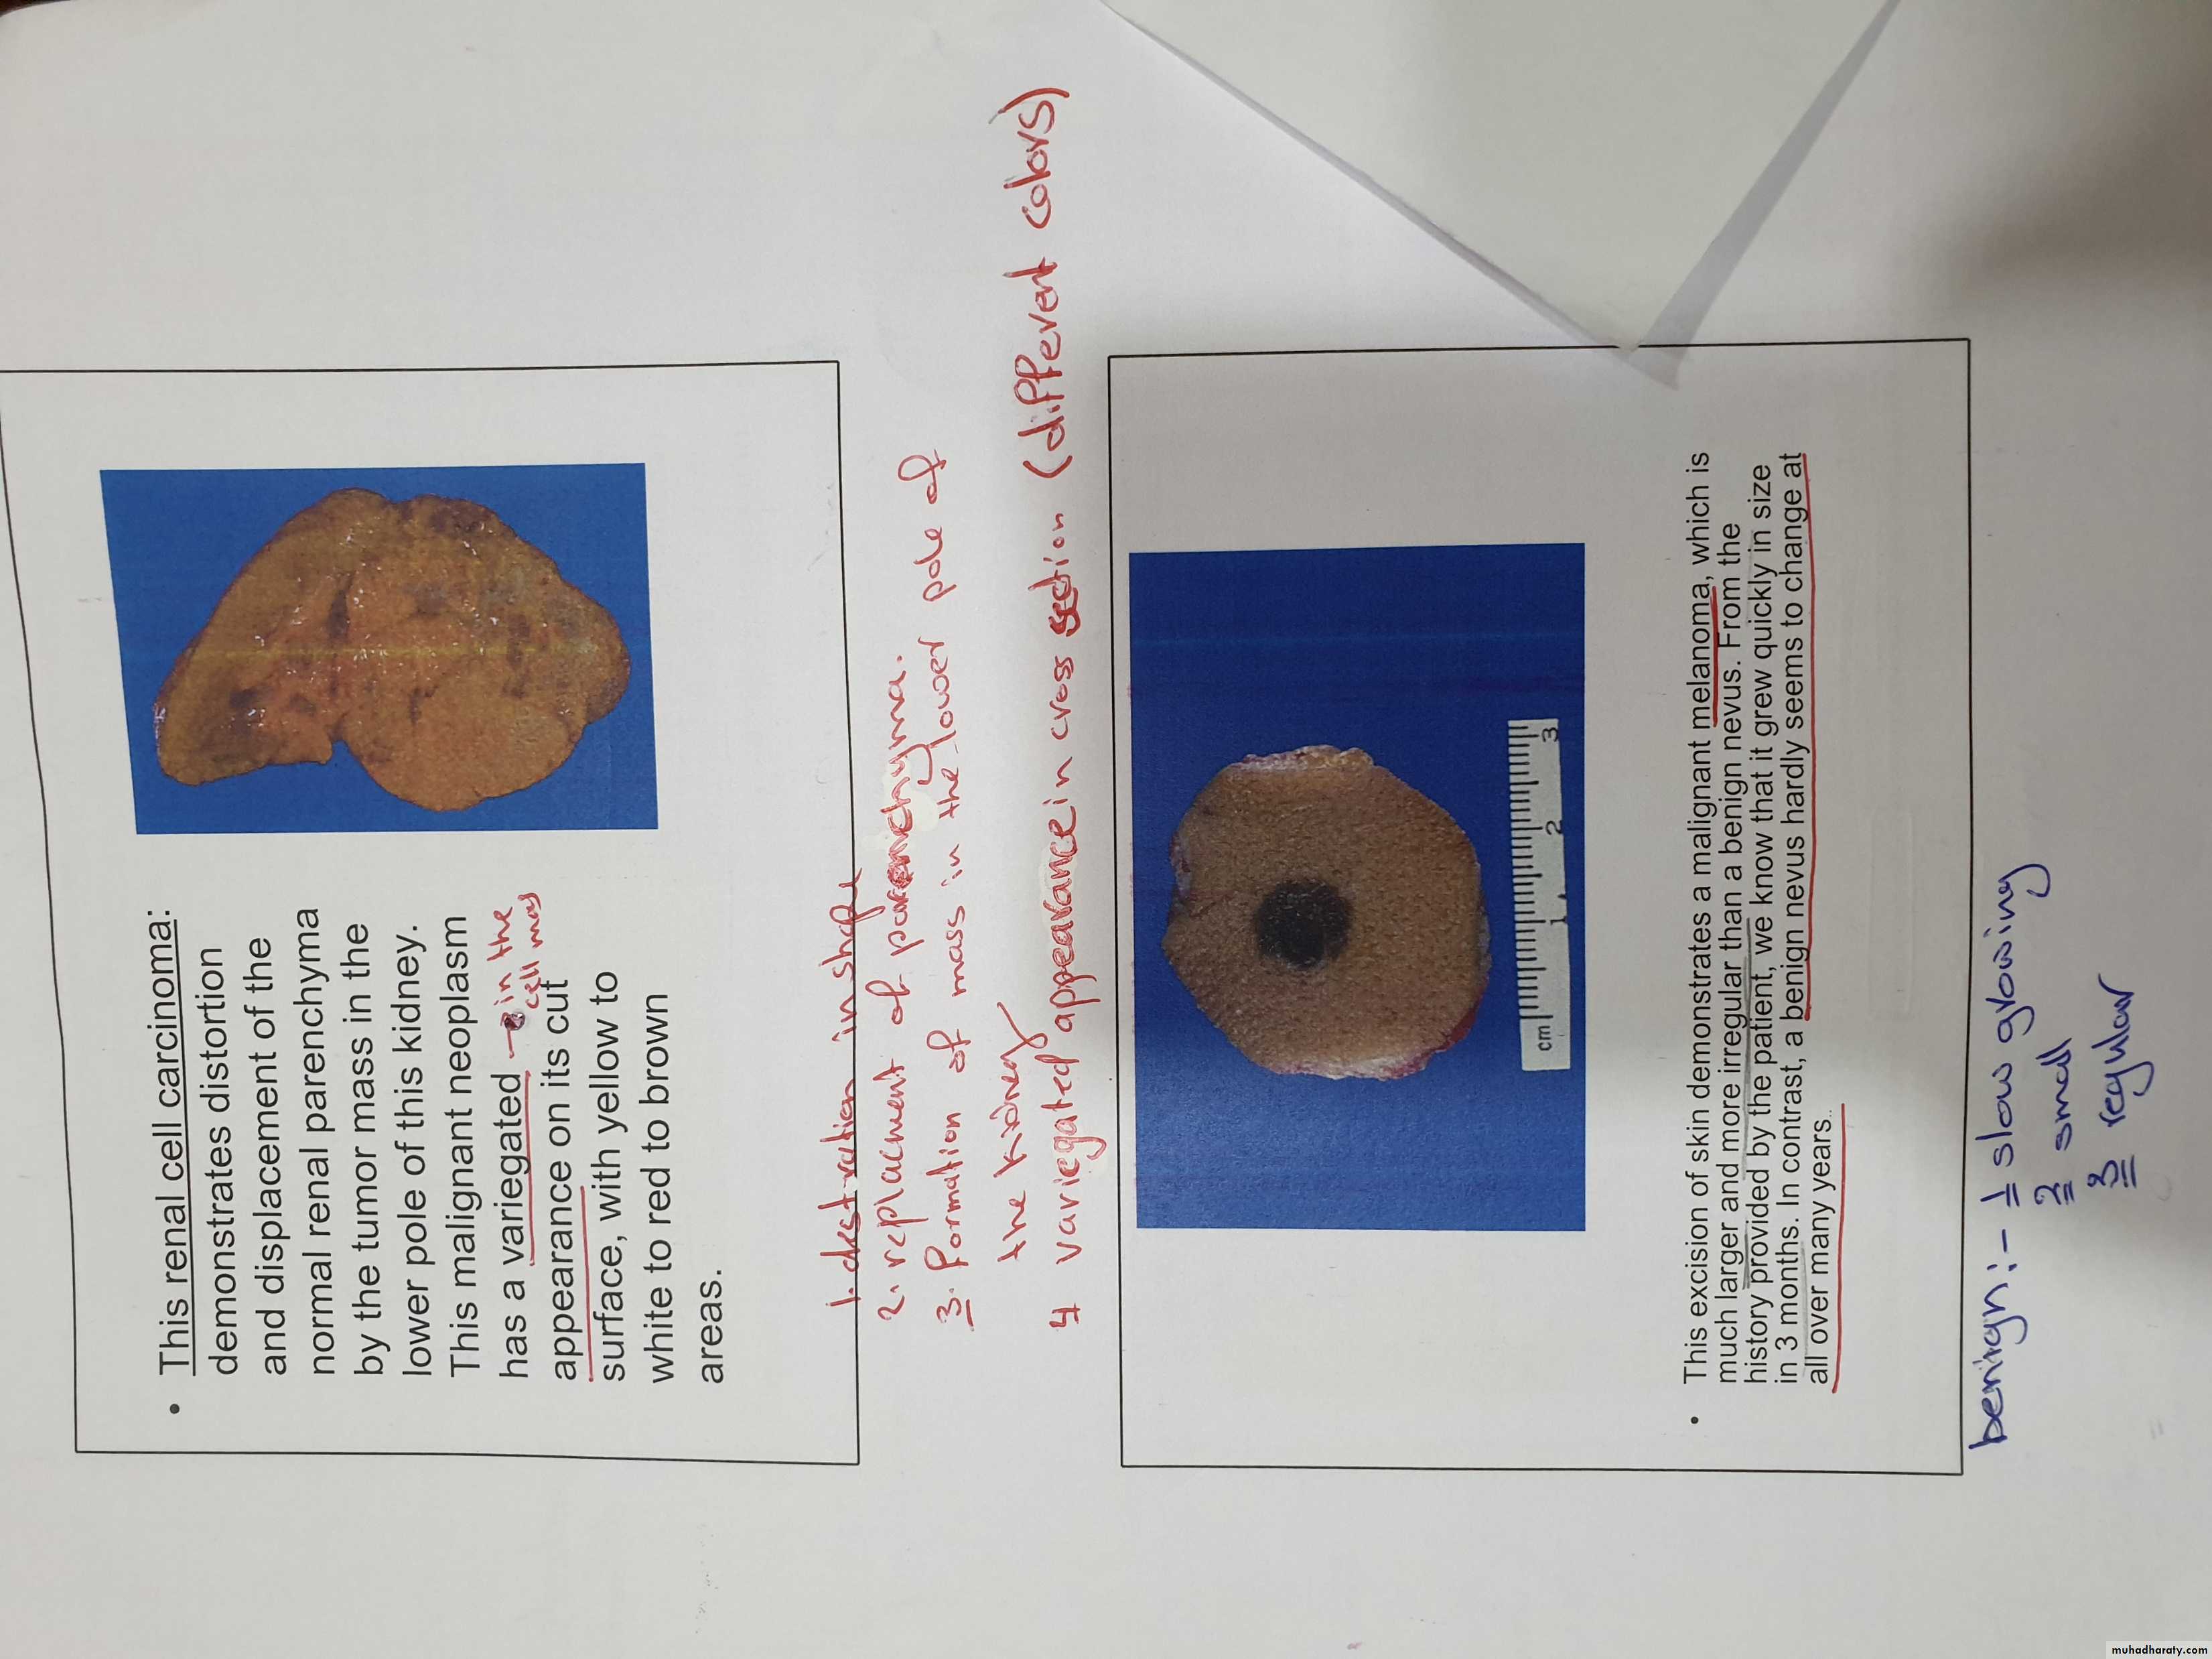 • This renal cell carcinoma:
demonstrates distortion
and displacement of the
normal renal parenchyma
by the tumor mass in the
lower pole of this kidney.
This malignant neoplasm
has a variegated → in the
cell mas
appearance on its cut
surface, with yellow to
white to red to brown
areas.
1. destration in shape
2. replacment of parenchyma.
3. Formation of mass in the lower pole of
the kidney
4 variegated appearance in cross section (different colors)
cm 1 2 3
• This excision of skin demonstrates a malignant melanoma, which is
much larger and more irregular than a benign nevus. From the
history provided by the patient, we know that it grew quickly in size
in 3 months. In contrast, a benign nevus hardly seems to change at
all over many years.
benign:- 1 slow growing
2 small
3 regular
muhadharaty.com